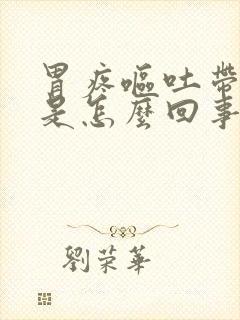 胃疼嘔吐帶
是怎麼回事
劉榮華